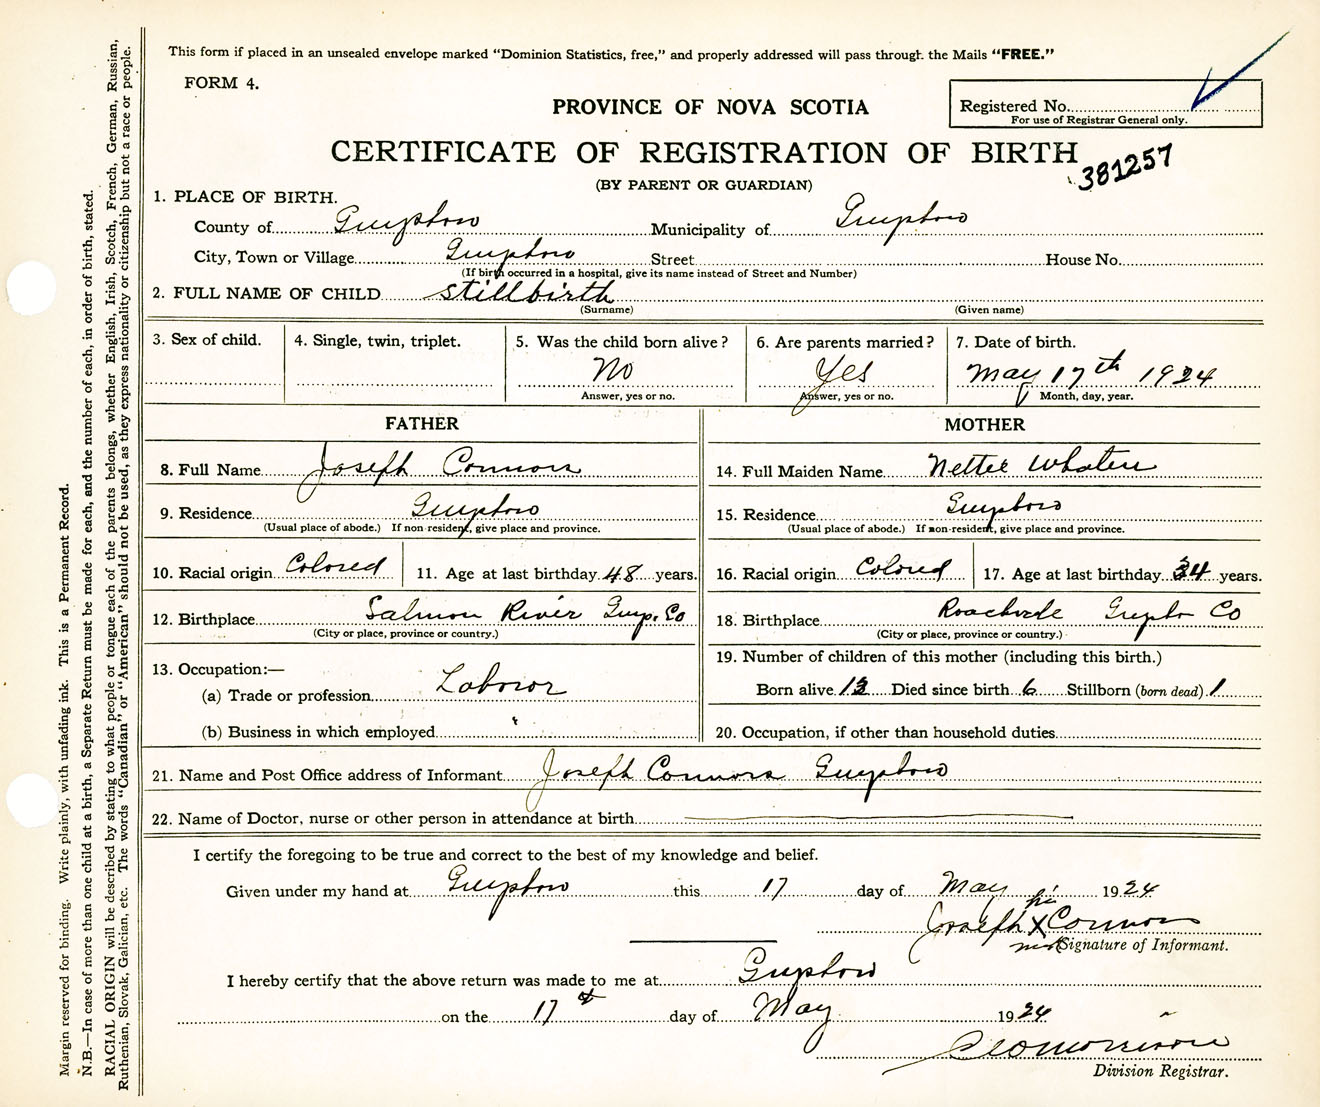 This form if placed in an unsealed envelope marked "Dominion Statistics, free," and properly addressed will pass through the Mails "FREE."
FORM 4.
PROVINCE OF NOVA SCOTIA
Registered No.
For use of Registrar General only.
CERTIFICATE OF REGISTRATION OF BIRTH
381257
(BY PARENT OR GUARDIAN)
1. PLACE OF BIRTH.
County of Guysboro Municipality of Guysboro
City, Town or Village Guysboro Street House No.
(If birth occurred in a hospital, give its name instead of Street and Number)
2. FULL NAME OF CHILD stillbirth
(Surname) (Given name)
3. Sex of child. 4. Single, twin, triplet. 5. Was the child born alive? 6. Are parents married? 7. Date of birth.
No Yes May 17th 1924
Answer, yes or no. Answer, yes or no. Month, day, year.
FATHER
8. Full Name Joseph Connors
9. Residence Guysboro
(Usual place of abode.) If non resident, give place and province.
10. Racial origin Colored 11. Age at last birthday 48 years.
12. Birthplace Salmon River Guys. Co
(City or place, province or country.)
13. Occupation:—
(a) Trade or profession Laboror
(b) Business in which employed
MOTHER
14. Full Maiden Name Nettie
15. Residence Guysboro
(Usual place of abode.) If non-resident, give place and province.
16. Racial origin Colored 17. Age at last birthday 34 years.
18. Birthplace Co
(City or place, province or country.)
19. Number of children of this mother (including this birth.)
Born alive Died since birth 6 Stillborn (born dead) 1
20. Occupation, if other than household duties
21. Name and Post Office address of Informant Joseph Connors Guysboro
22. Name of Doctor, nurse or other person in attendance at birth
I certify the foregoing to be true and correct to the best of my knowledge and belief.
Given under my hand at Guysboro this 17 day of May 1924
his
Joseph X Connors
mark Signature of Informant.
I hereby certify that the above return was made to me at Guysboro
on the 17 day of May 1924
Morrison
Division Registrar.
Margin reserved for binding. Write plainly, with unfading ink. This is a Permanent Record.
N.B.—In case of more than one child at a birth, a Separate Return must be made for each, and the number of each, in order of birth, stated.
RACIAL ORIGIN will be described by stating to what people or tongue each of the parents belongs, whether English, Irish, Scotch, French, German, Russian,
Ruthenian, Slovak, Galician, etc. The words "Canadian" or "American" should not be used, as they express nationality or citizenship but not a race or people.